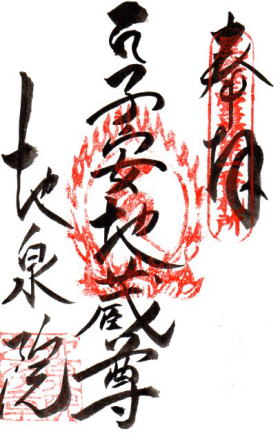 奉拝
子安地蔵尊
地泉院